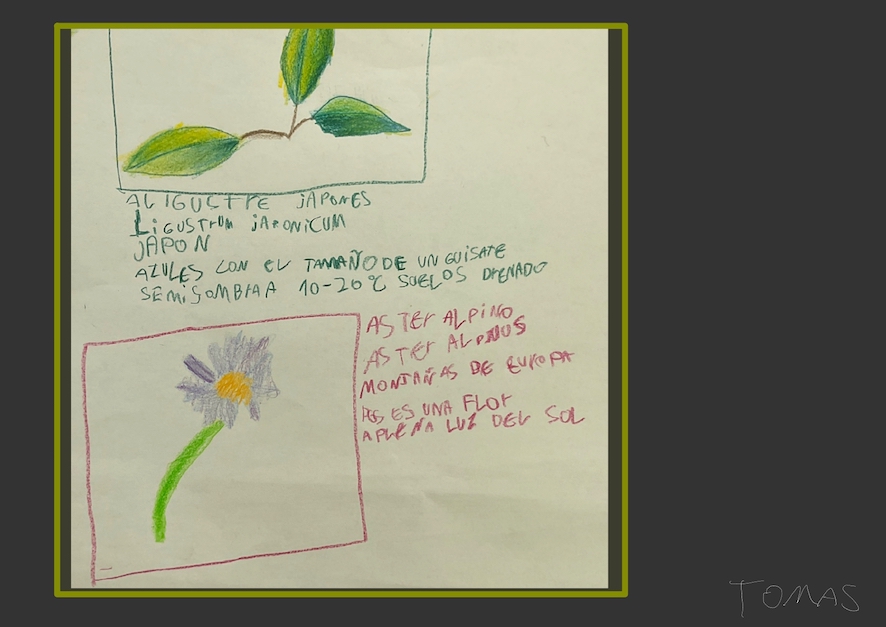 ALIGUCTRE JAPONES
LIGUSTRUM JAPONICUM
JAPON
AZULES CON EL TAMAÑO DE UN GUISATE
SEMISOMBRAA 10-20°C SUELOS DRENADO
ASTER ALPINO
ASTER ALPINUS
MONTAÑAS DE EUROPA
ES UNA FLOR
APLENA LUZ DEL SOL
TOMAS